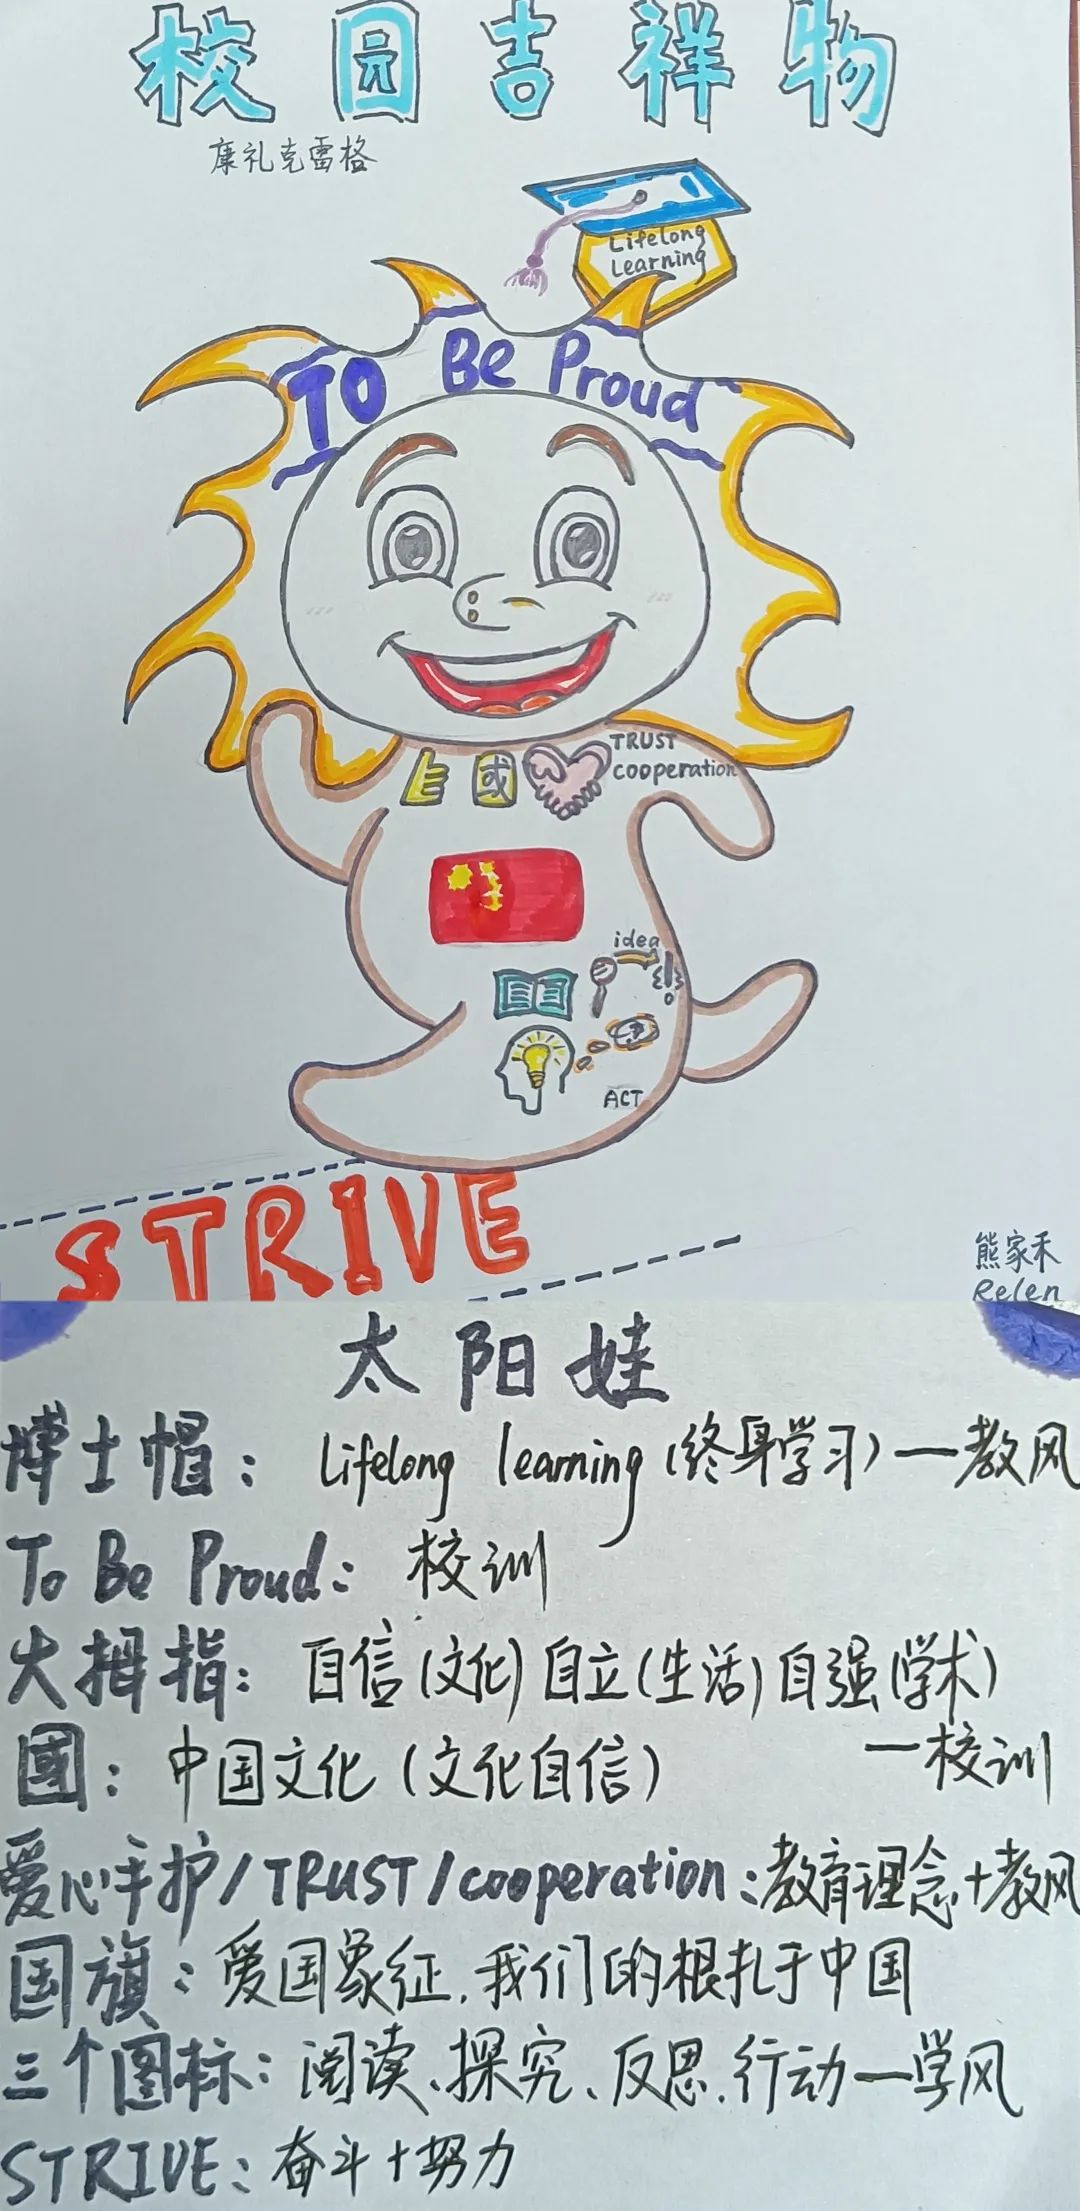 校园吉祥物
康礼克雷格
Lifelong
Learning
To Be Proud
TRUST
cooperation
或
idea
ACT
STRIVE
熊家禾
Relen
太阳娃
博士帽：Lifelong learning（终身学习）—教风
To Be Proud：校训
大拇指：自信（文化）自立（生活）自强（学术）
—校训
國：中国文化（文化自信）
爱心手护/TRUST/cooperation：教育理念+教风
国旗：爱国象征，我们的根扎于中国
三个图标：阅读、探究、反思、行动—学风
STRIVE：奋斗+努力